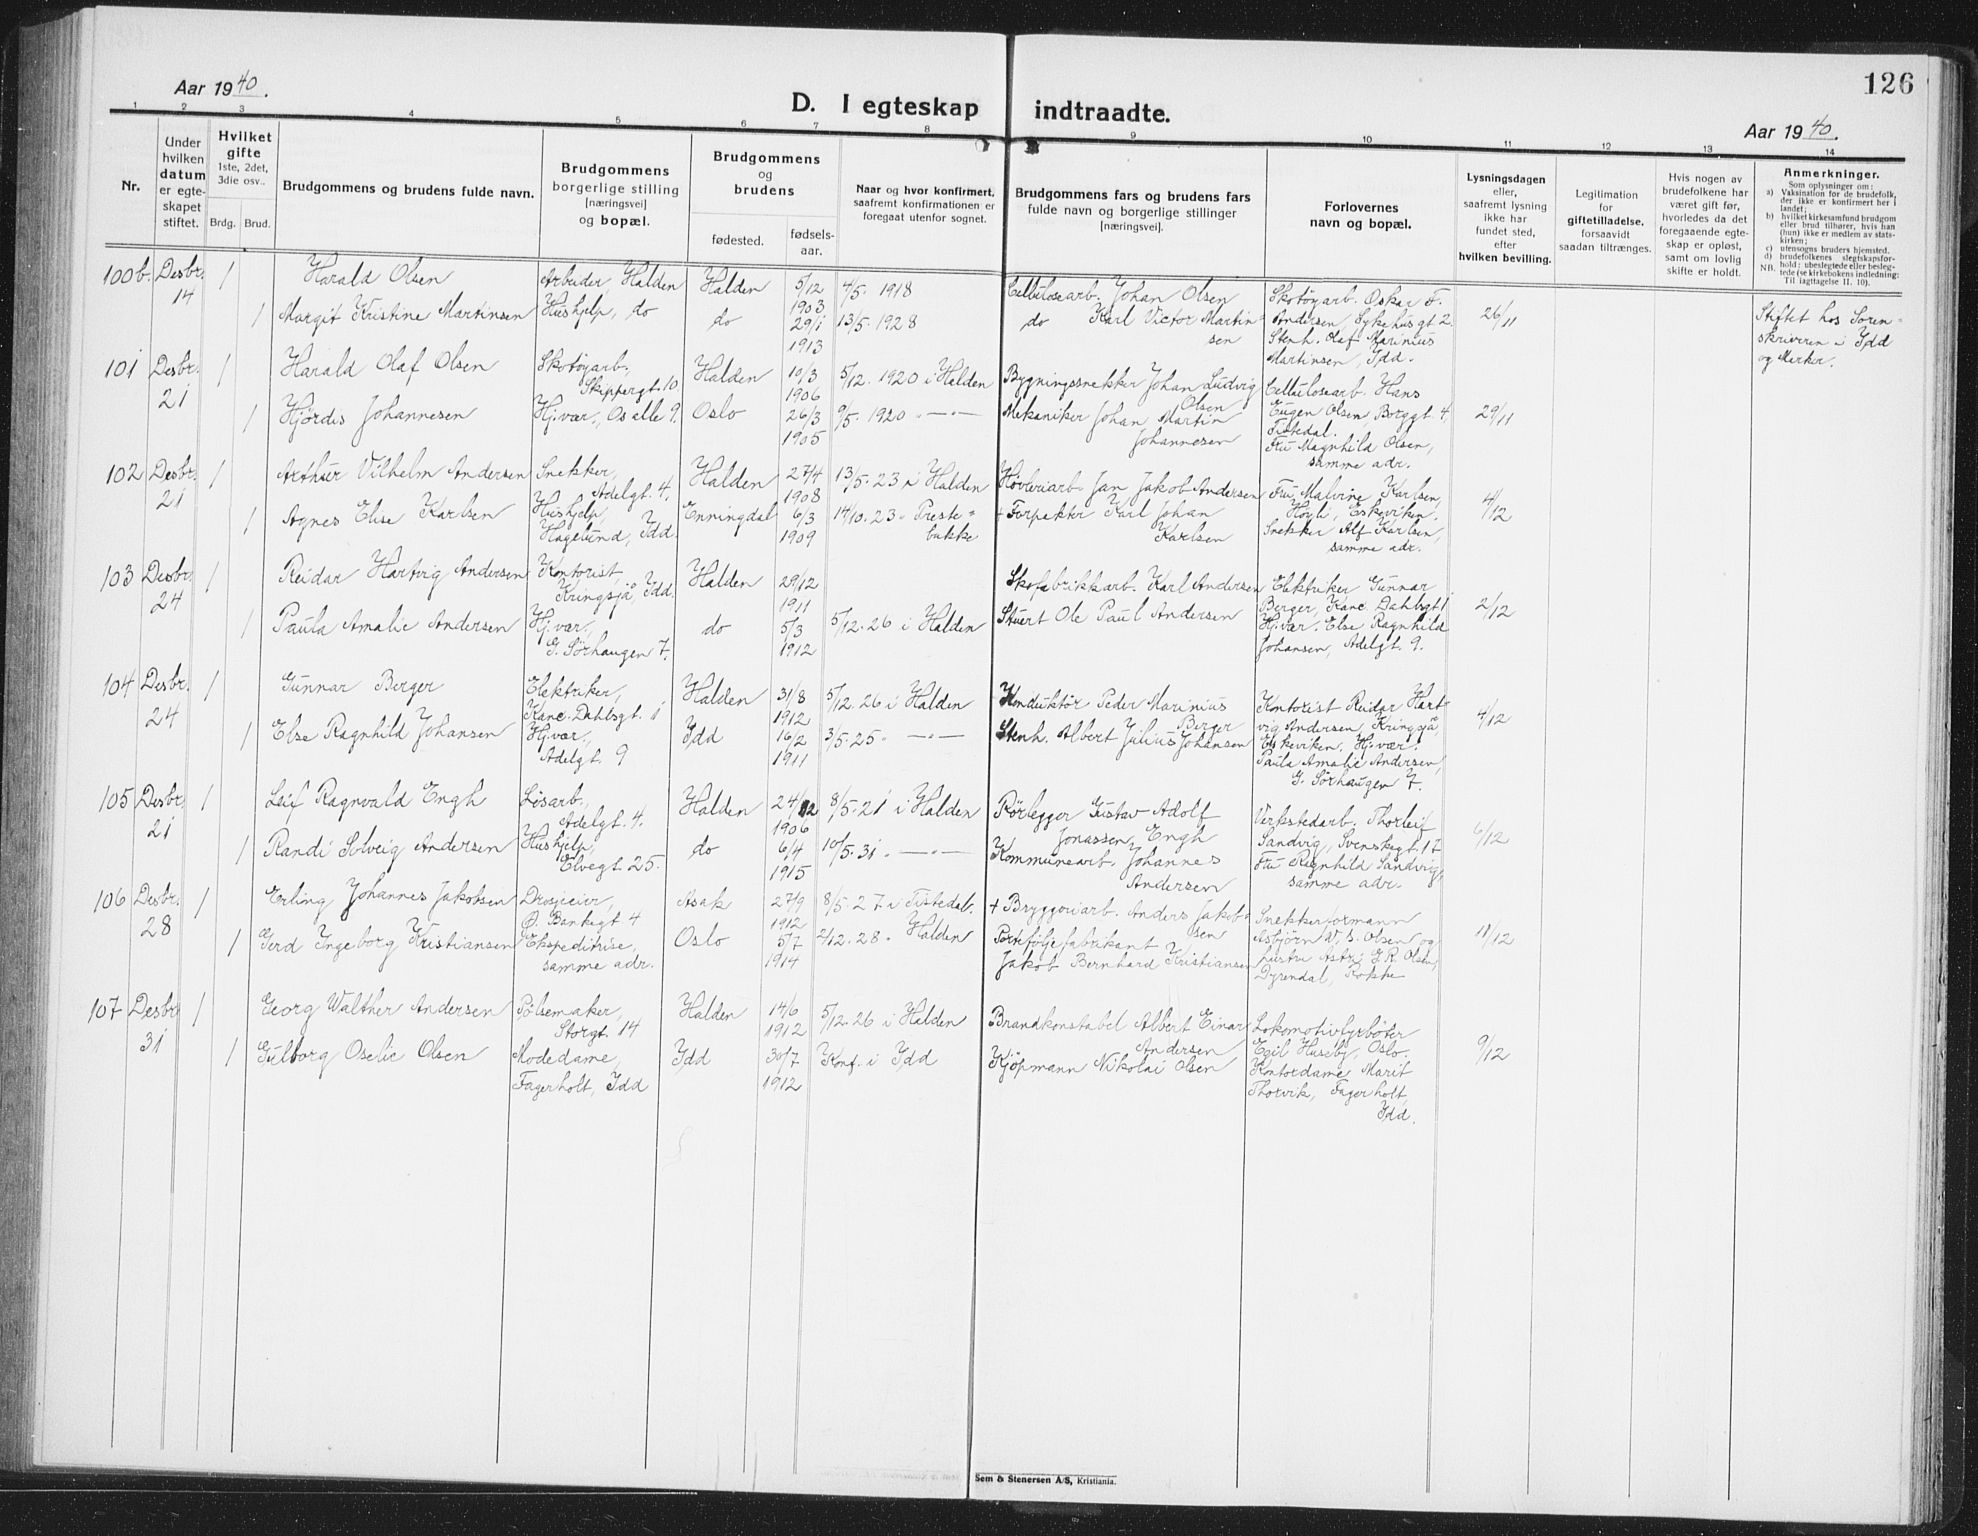 126
Aar 1940.
D. I egteskap indtraadte.
Aar 1940.
1 2 3 4 5 6 7 8 9 10 11 12 13 14
Nr.
Under
hvilken
datum
er egte-
skapet
stiftet.
Hvilket
gifte
1ste, 2det,
3die osv..
Brdg. Brud.
Brudgommens og brudens fulde navn.
Brudgommens
borgerlige stilling
[næringsvei]
og bopæl.
Brudgommens
og
brudens
fødested.
fødsels-
aar.
Naar og hvor konfirmert,
saafremt konfirmationen er
foregaat utenfor sognet.
Brudgommens fars og brudens fars
fulde navn og borgerlige stillinger
[næringsvei].
Forlovernes
navn og bopæl.
Lysningsdagen
eller,
saafremt lysning
ikke har
fundet sted,
efter
hvilken bevilling.
Legitimation
for
giftetilladelse,
forsaavidt
saadan tiltrænges.
Hvis nogen av
brudefolkene har
været gift før,
hvorledes da det
foregaaende egte-
skap er opløst,
samt om lovlig
skifte er holdt.
Anmerkninger.
Som oplysninger om:
a) Vaksination for de brudefolk,
der ikke er konfirmert her i
landet;
b) hvilket kirkesamfund brudgom
eller brud tilhører, hvis han
(hun) ikke er medlem av stats-
kirken;
c) utensogns bruders hjemsted.
d) brudefolkenes slegtskapsfor-
hold: ubeslegtede eller besleg-
tede (se kirkebokens indledning:
NB. Til iagttagelse II. 10).
100b. Desbr. 14
1
Harald Olsen
Arbeider, Halden
Halden
5/12 1903
4/5. 1918
Cellulosearb. Johan Olsen
Skotøyarb. Oskar F.
Andersen, Sykehusgt 2.
Stenh. Olaf Marinius
Martinsen, Idd.
26/11
Stiftet hos Soren-
skriveren i Idd
og Marker.
1
Margit Kristine Martinsen
Hushjelp, do
do
29/1 1913
13/5. 1928
do Karl Victor Martin-
sen
101 Desbr. 21
1
Harald Olaf Olsen
Skotøyarb.,
Skippergt. 10
Halden
10/3 1906
5/12. 1920 i Halden
Bygningssnekker Johan Ludvig
Olsen
Cellulosearb. Hans
Eugen Olsen, Borggt. 4,
Tistedal.
Fru Magnhild Olsen,
samme adr.
29/11
1
Hjørdis Johannesen
Hj.vær., Os alle 9.
Oslo
26/3 1905
9/5. 1920 -"-
Mekaniker Johan Martin
Johannesen
102 Desbr. 21
1
Arthur Vilhelm Andersen
Snekker,
Adelgt. 4.
Halden
27/4 1908
13/5. 23 i Halden
Høvleriarb. Jan Jakob Andersen
Fru Malvine Karlsen,
Høyli, Eskeviken.
Snekker Alf Karlsen,
samme adr.
4/12
1
Agnes Elise Karlsen
Hushjelp,
Hagelund, Idd.
Enningdal
6/3 1909
14/10. 23 " Preste-
bakke
+ Forpakter Karl Johan
Karlsen
103 Desbr. 24
1
Reidar Hartvig Andersen
Kontorist,
Kringsjå, Idd.
Halden
29/12 1911
Skofabrikkarb. Karl Andersen
Elektriker Gunnar
Berger, Kanc. Dahlsgt 1
Hj.vær. Else Ragnhild
Johansen, Adelgt. 9.
2/12
1
Paula Amalie Andersen
Hj.vær.,
G. Sørhaugen 7.
do
5/3 1912
5/12. 26 i Halden
Stuert Ole Paul Andersen
104 Desbr. 24
1
Gunnar Berger
Elektriker,
Kanc. Dahlsgt. 1
Halden
31/8 1912
5/12. 26 i Halden
Konduktør Peder Marinius
Berger
Kontorist Reidar Hart-
vig Andersen, Kringsjå,
Eskeviken. Hj.vær.
Paula Amalie Andersen,
G. Sørhaugen 7.
4/12
1
Else Ragnhild Johansen
Hj.vær.,
Adelgt. 9
Idd
16/2 1911
3/5. 25 -"-
Stenh. Albert Julius Johansen
105 Desbr. 21
1
Leif Ragnvald Engh
Løsarb.,
Adelgt. 4.
Halden
24/12 1906
8/5. 21 i Halden
Rørlegger Gustav Adolf
Jonassen Engh
Verkstedarb. Thorleif
Sandvig, Svenskegt. 17
Fru Ragnhild Sandvig,
samme adr.
6/12
1
Randi Solveig Andersen
Hushjelp,
Elvegt. 25.
do
6/4 1915
10/5. 31 -"-
Kommunearb. Johannes
Andersen
106 Desbr. 28
1
Erling Johannes Jakobsen
Drosjeeier,
Ø. Bankegt 4
Asak
27/9 1912
8/5. 27 i Tistedal.
+ Bryggeriarb. Anders Jakob-
sen
Snekkerformann
Asbjørn W. S. Olsen og
hustru Astri G. R. Olsen,
Dyrendal, Rokke
11/12
1
Gerd Ingeborg Kristiansen
Ekspeditrise,
samme adr.
Oslo
5/7 1914
2/12. 28 " Halden
Porteføljefabrikant
Jakob Bernhard Kristiansen
107 Desbr. 31
1
Georg Walther Andersen
Pølsemaker,
Storgt. 14
Halden
14/6 1912
5/12. 26 i Halden
Brandkonstabel Albert Einar
Andersen
Lokomotivfyrbøter
Egil Huseby, Oslo.
Kontordame Marit
Thorvik, Fagerholt,
Idd.
9/12
1
Gulborg Oselie Olsen
Modedame,
Fagerholt, Idd
Idd
30/7 1912
Konf. i Idd
Kjøpmann Nikolai Olsen
Sem & Stenersen A/S, Kristiania.